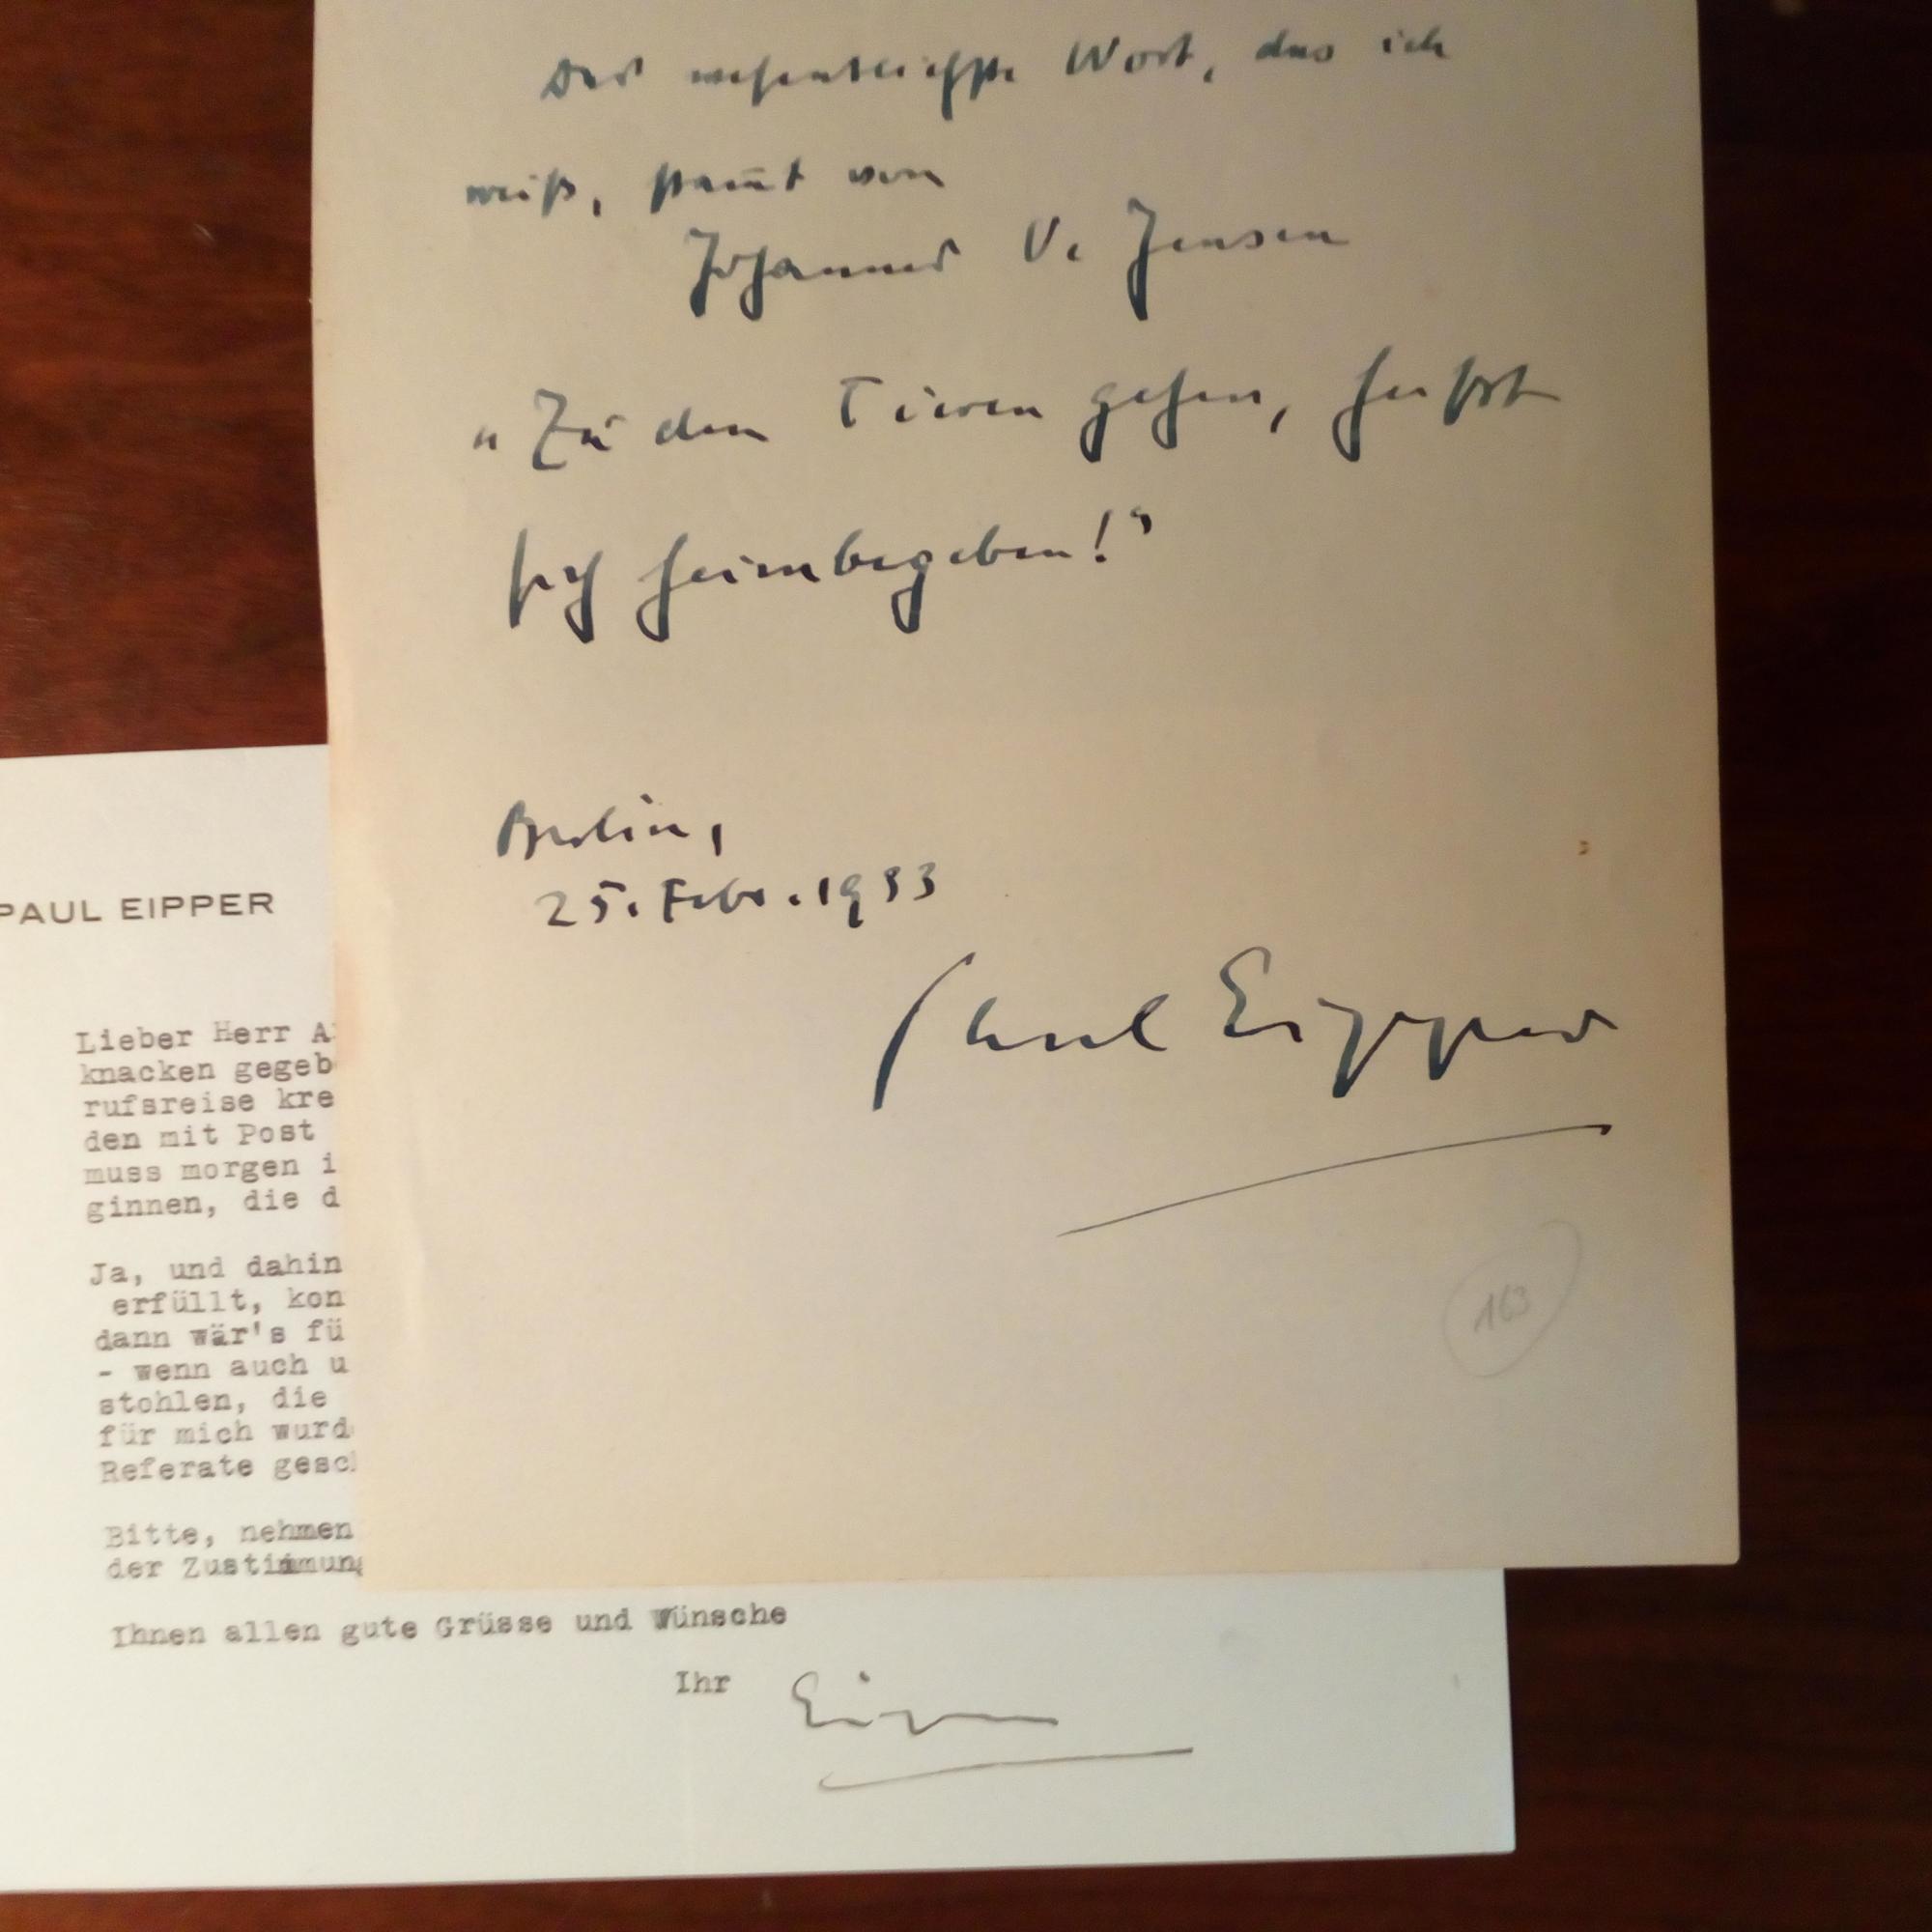 Das wesentlichste Wort, das ich
weiß, stam̄t von
Johannes V. Jensen
„Zu den Tieren gehen, heisst
sich heimbegeben!“
Berlin,
25. Febr. 1933
Paul Eipper
163
PAUL EIPPER
Lieber Herr A
knacken gegeb
rufsreise kre
den mit Post
muss morgen i
ginnen, die d
Ja, und dahin
erfüllt, kon
dann wär's fü
- wenn auch u
stohlen, die
für mich wurd
Referate gesc
Bitte, nehmen
der Zustimmung
Ihnen allen gute Grüsse und Wünsche
Ihr Eipper